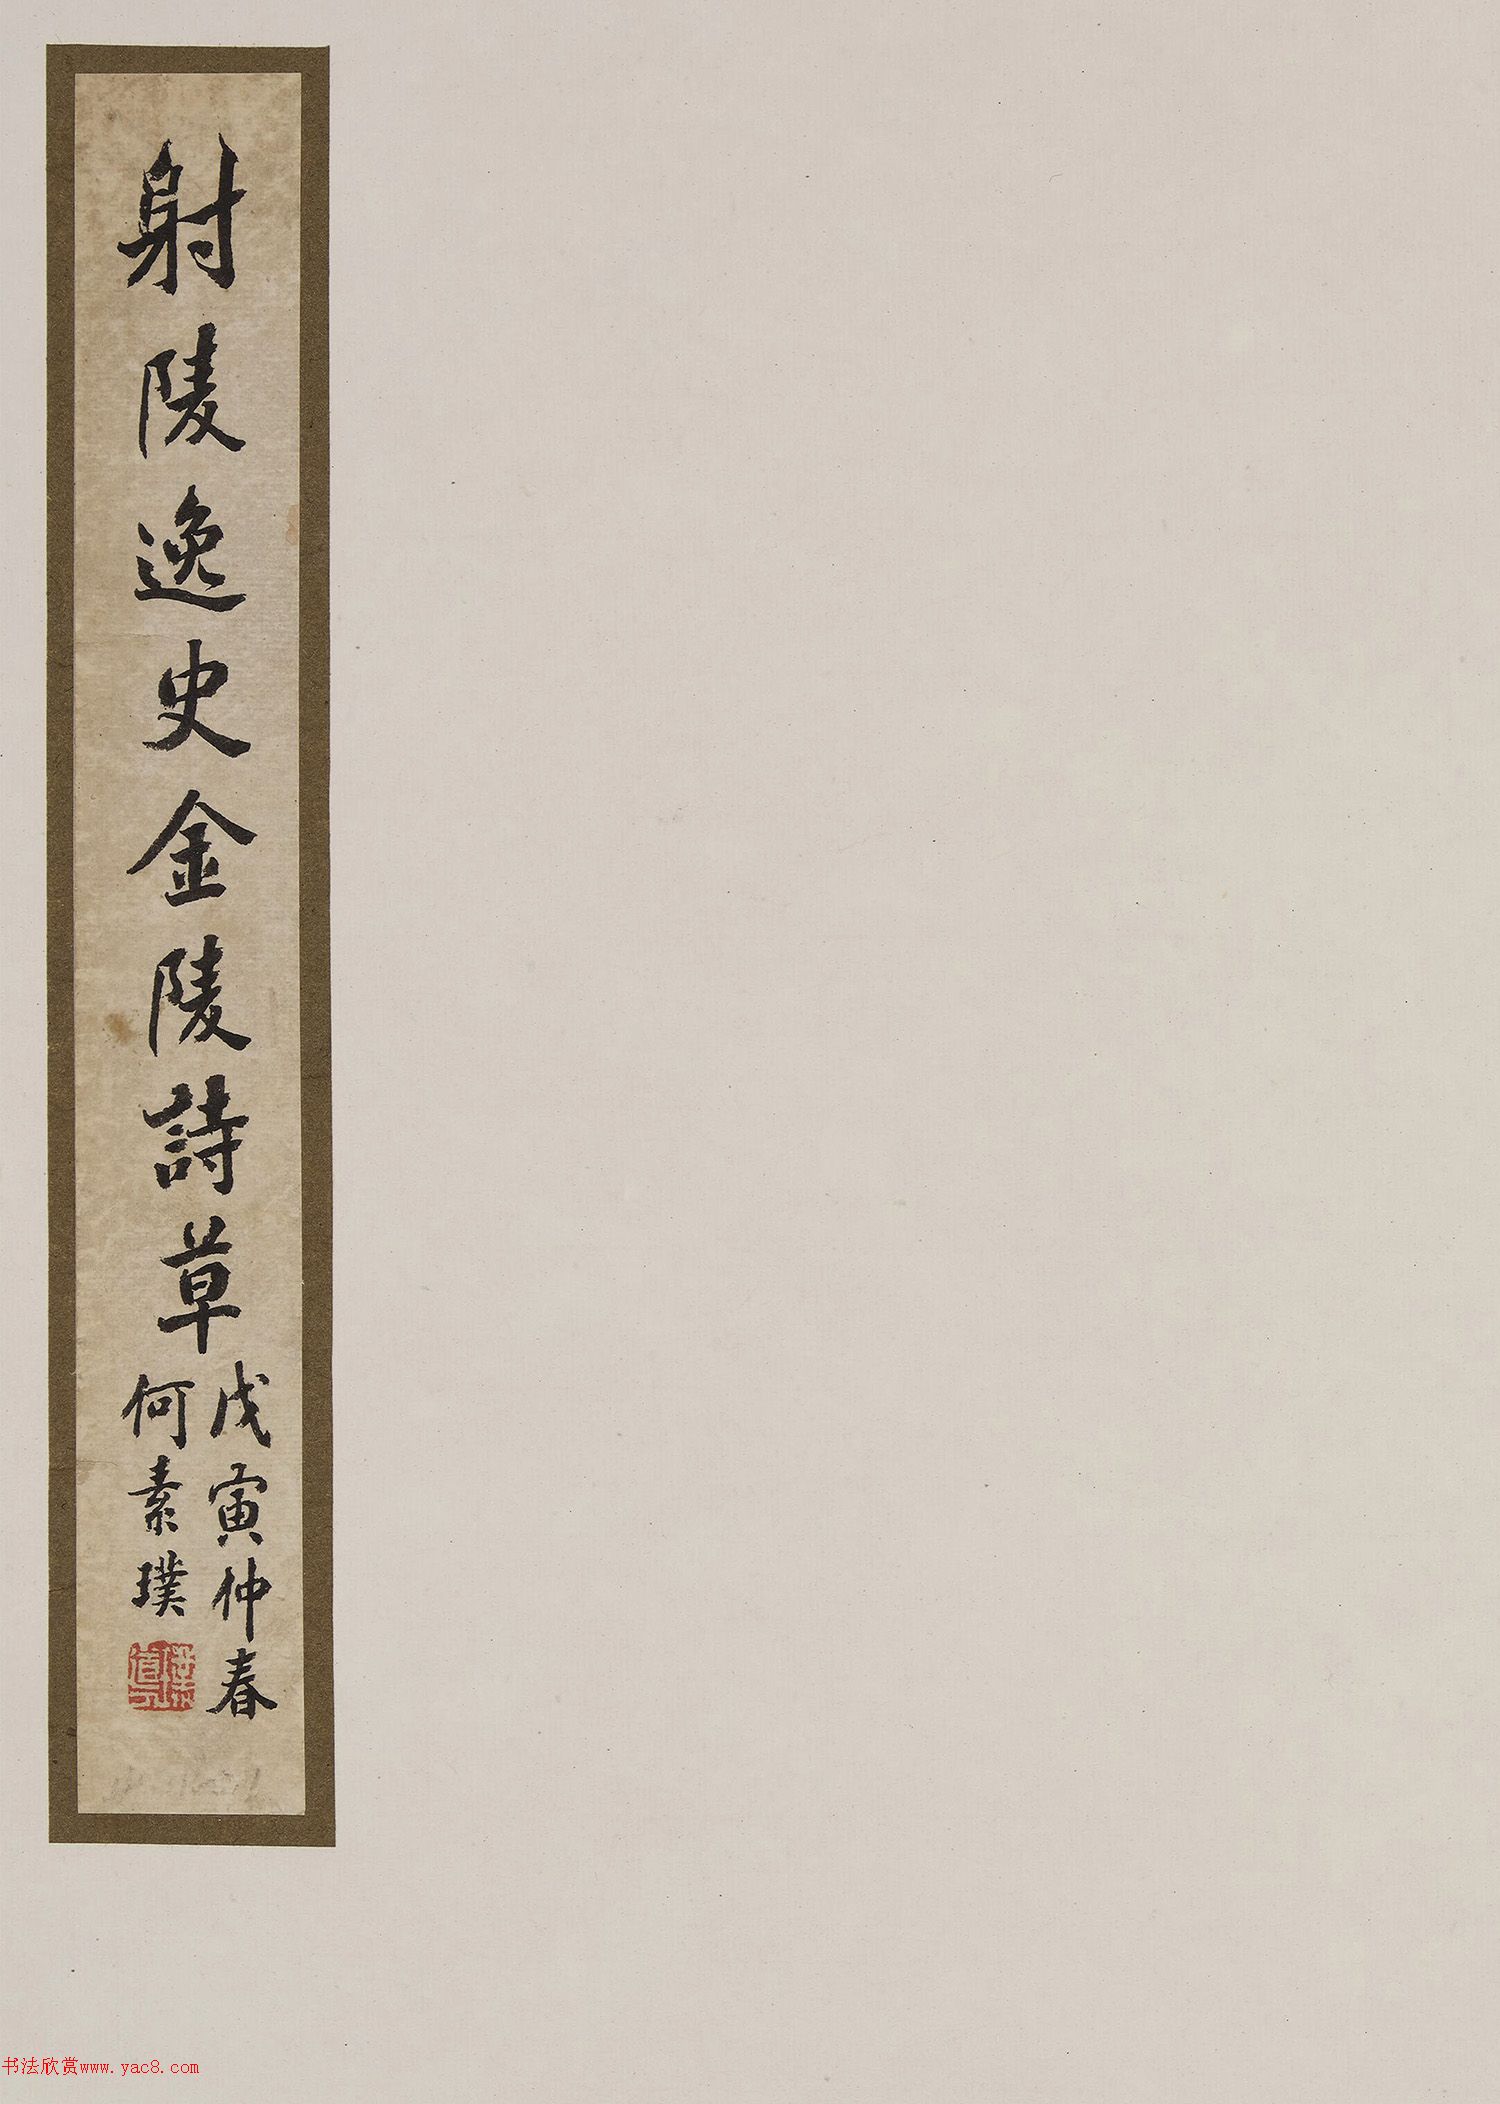 射陵逸史金陵詩草
戊寅仲春
何素璞
书法欣赏www.yac8.com